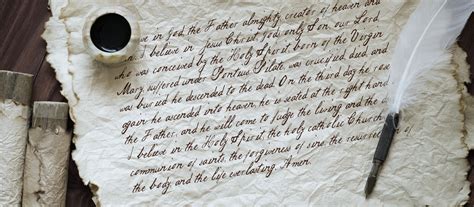 I believe in God the Father almighty creator of heaven and
I believe in Jesus Christ God's only Son our Lord
who was conceived by the Holy Spirit born of the Virgin
Mary suffered under Pontius Pilate was crucified died and
was buried he descended to the dead On the third day he rose
again he ascended into heaven he is seated at the right hand
the Father, and he will come to judge the living and the
I believe in the Holy Spirit the holy catholic Church
communion of saints, the forgiveness of sins the resurrection of
the body, and the life everlasting. Amen.